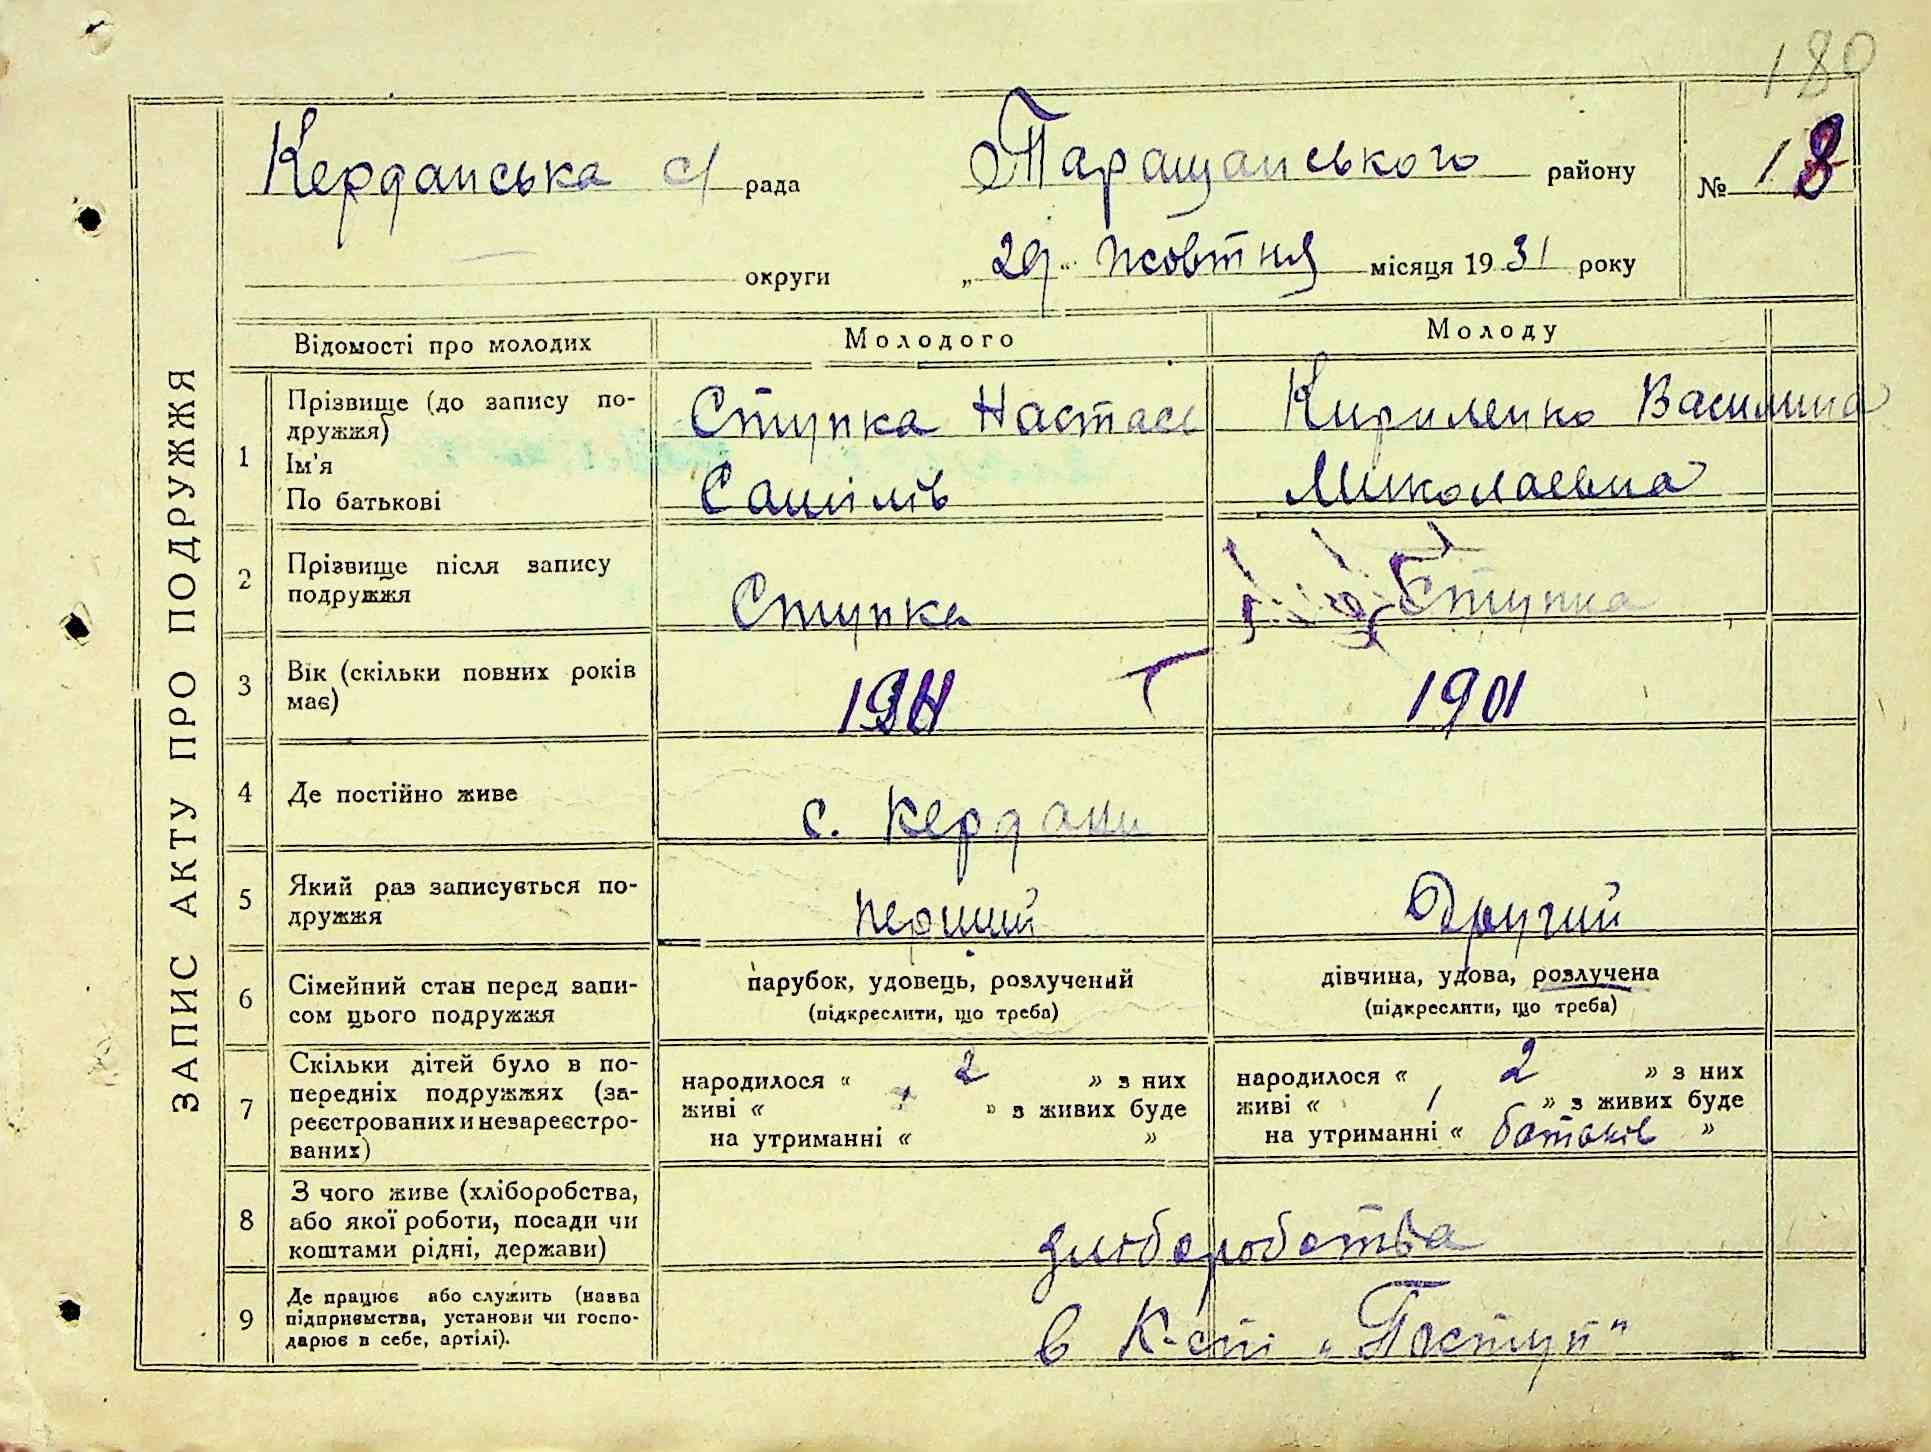 180
Керданська с/ рада Таращанського району № 18
округи „ 29 “ жовтня місяця 1931 року
ЗАПИС АКТУ ПРО ПОДРУЖЖЯ
Відомості про молодих Молодого Молоду
1 Прізвище (до запису по-
дружжя)
Ім'я
По батькові
Ступка Настась
Самілів
Кириленко Василина
Миколаевна
2 Прізвище після запису
подружжя
Ступка Ступка
3 Вік (скільки повних років
має)
1901
4 Де постійно живе с. Кердани
5 Який раз записується по-
дружжя
перший Другий
6 Сімейний стан перед запи-
сом цього подружжя
парубок, удовець, розлучений
(підкреслити, що треба)
дівчина, удова, розлучена
(підкреслити, що треба)
7 Скільки дітей було в по-
передніх подружжях (за-
реєстрованих и незареєстро-
ваних)
народилося « 2 » з них
живі « » з живих буде
на утриманні « »
народилося « 2 » з них
живі « 1 » з живих буде
на утриманні « батьків »
8 З чого живе (хліборобства,
або якої роботи, посади чи
коштами рідні, держави)
хліборобства
9 Де працює або служить (назва
підприємства, установи чи госпо-
дарює в себе, артілі).
в К-сті „Поступ"